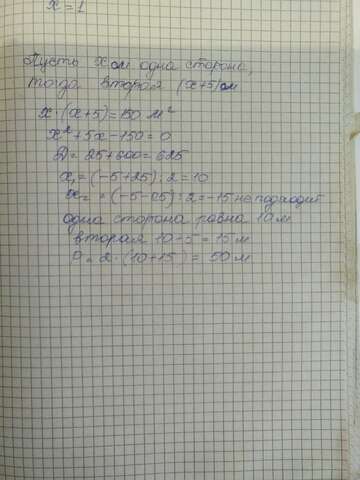 x = 1
Пусть x м одна сторона,
тогда вторая (x+5) м
x·(x+5)=150 м²
x²+5x-150=0
D=25+600=625
x₁=(-5+25):2=10
x₂=(-5-25):2=-15 не подходит
одна сторона равна 10 м
вторая 10+5=15 м
P=2·(10+15)=50 м